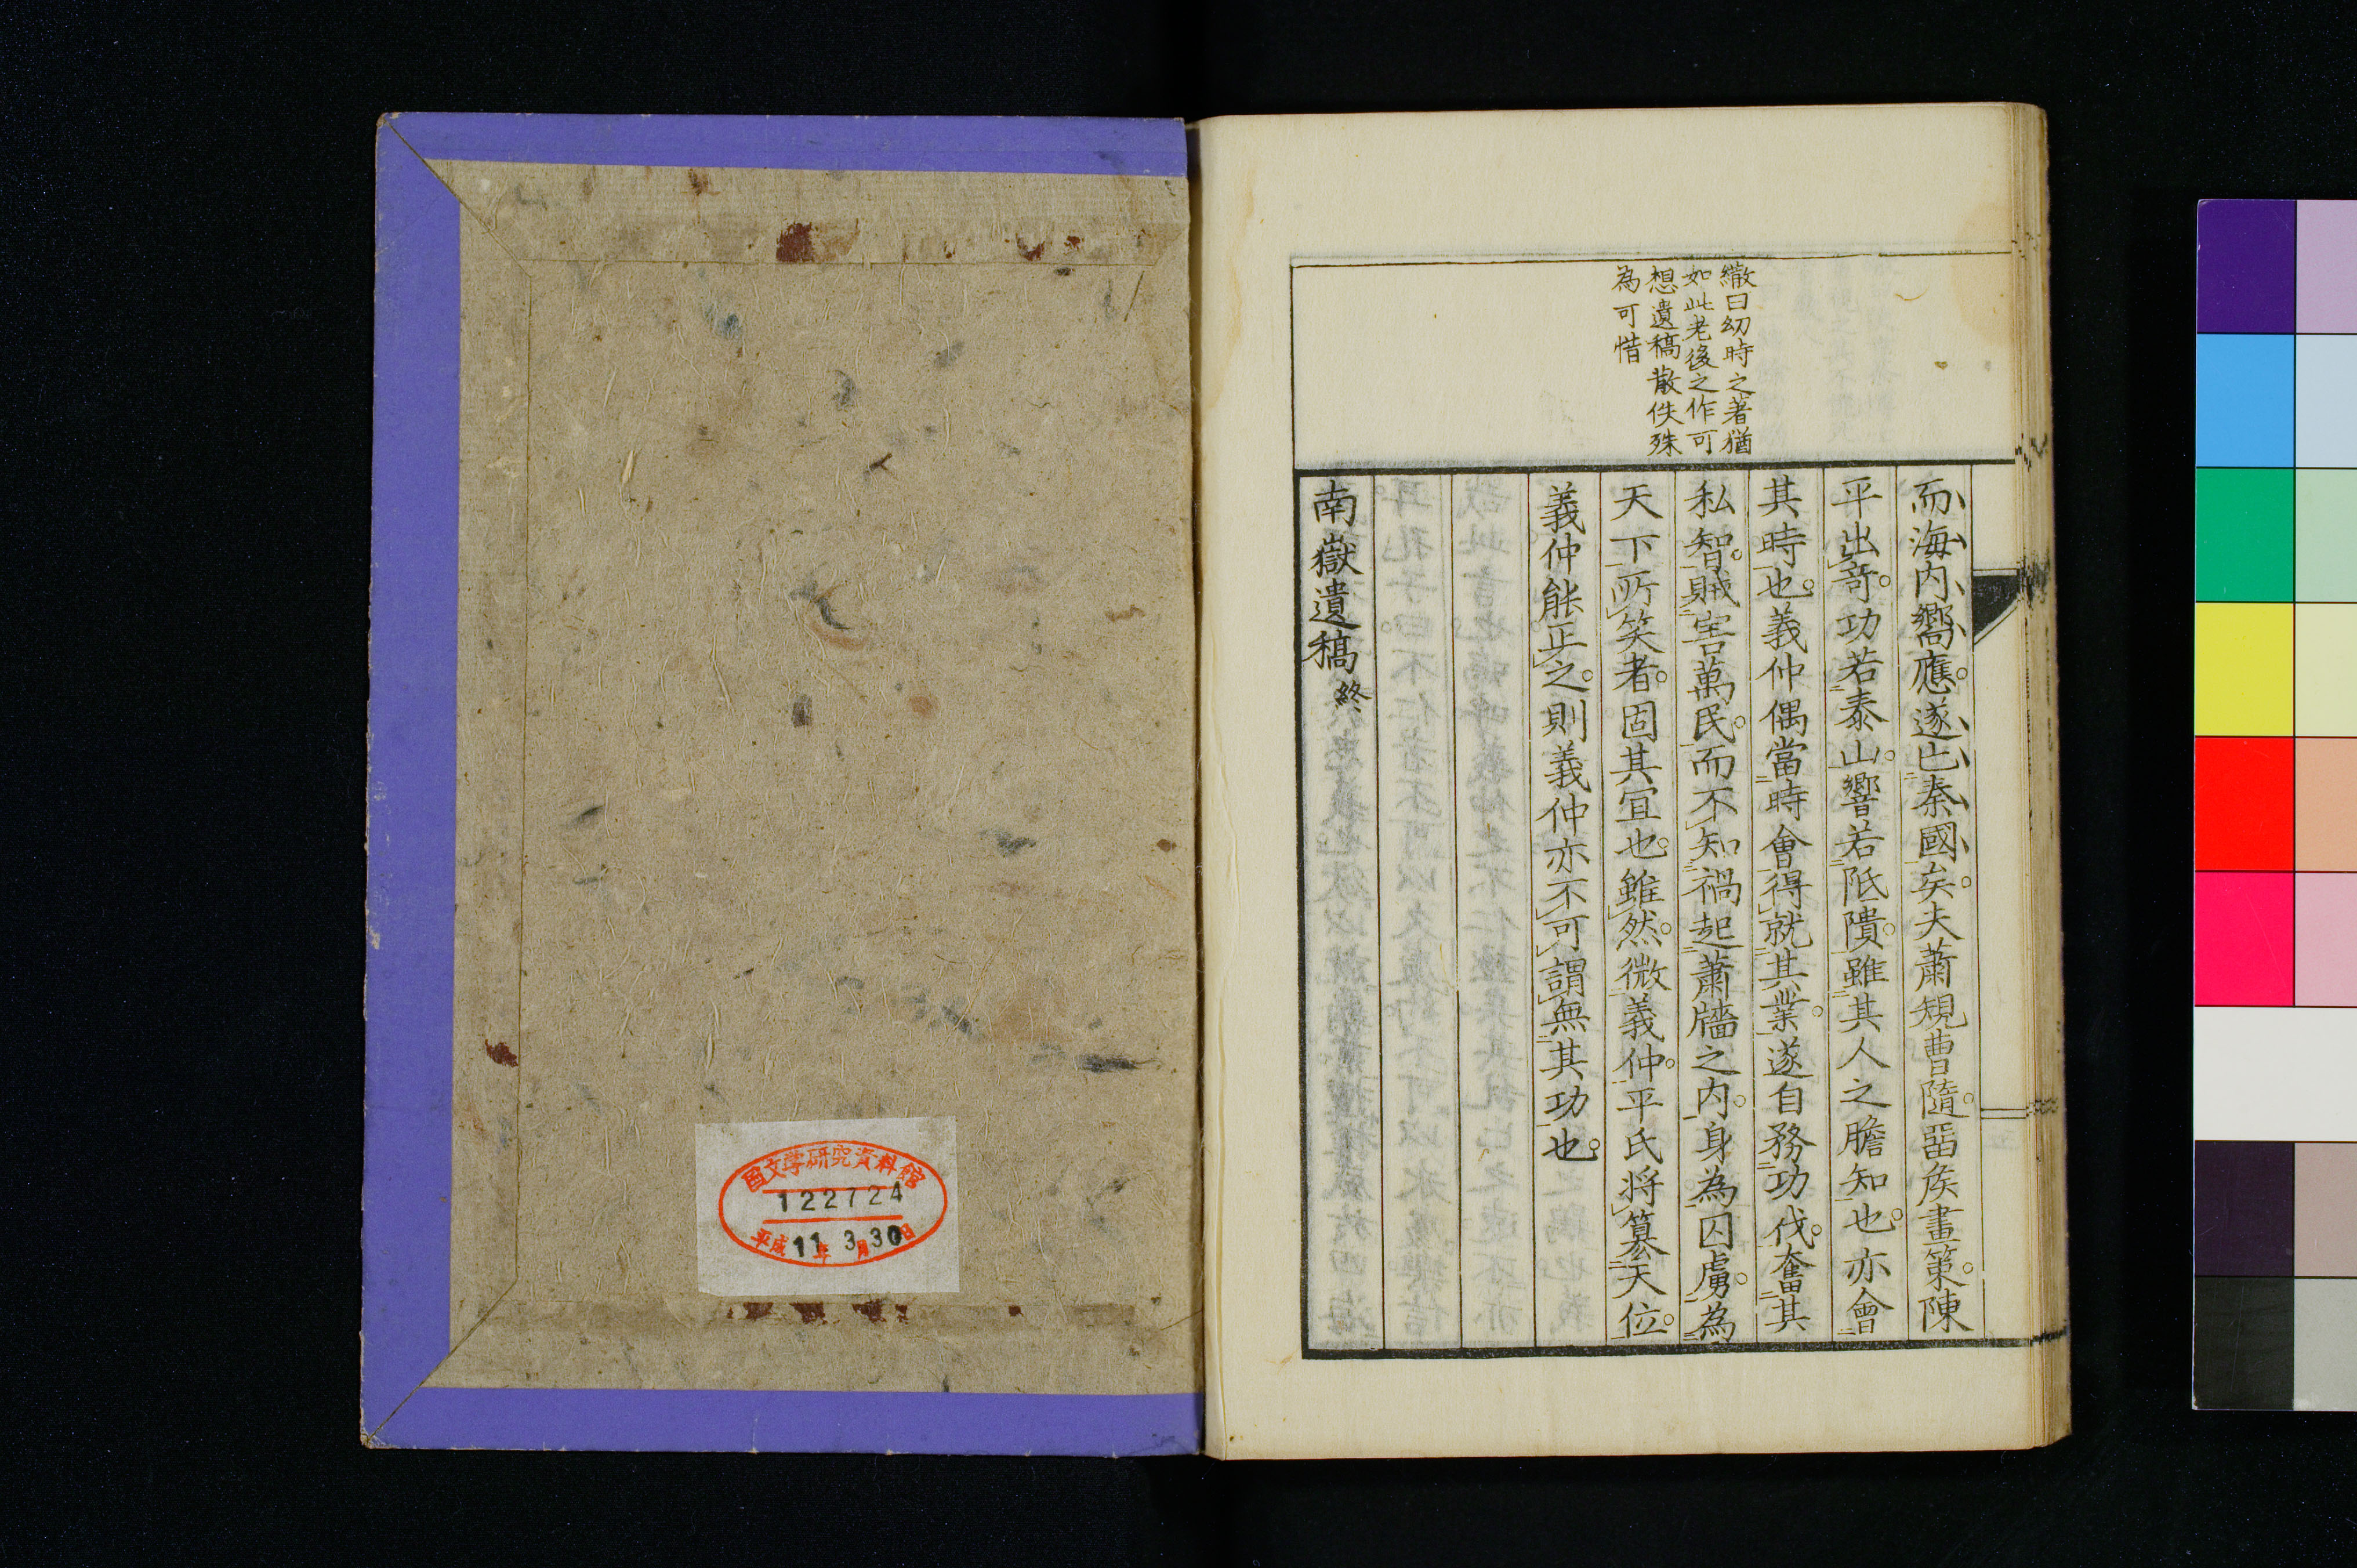 繳曰幼時之著猶
如此老後之作可
想遺稿散佚殊
為可惜
而海内嚮應。遂亡秦國矣。夫蕭規曹隨。畱矦畫策。陳
平出奇。功若泰山。響若阺隤。雖其人之膽知也。亦會
其時也。義仲偶當時會。得就其業。遂自務功伐。奮其
私智。賊害萬民。而不知禍起蕭牆之内。身為囚虜。為
天下所笑者。固其宜也。雖然。微義仲。平氏将簒天位。
義仲能正之。則義仲亦不可謂無其功也。
南嶽遺稿終
国文学研究資料館
122724
平成11年3月30日